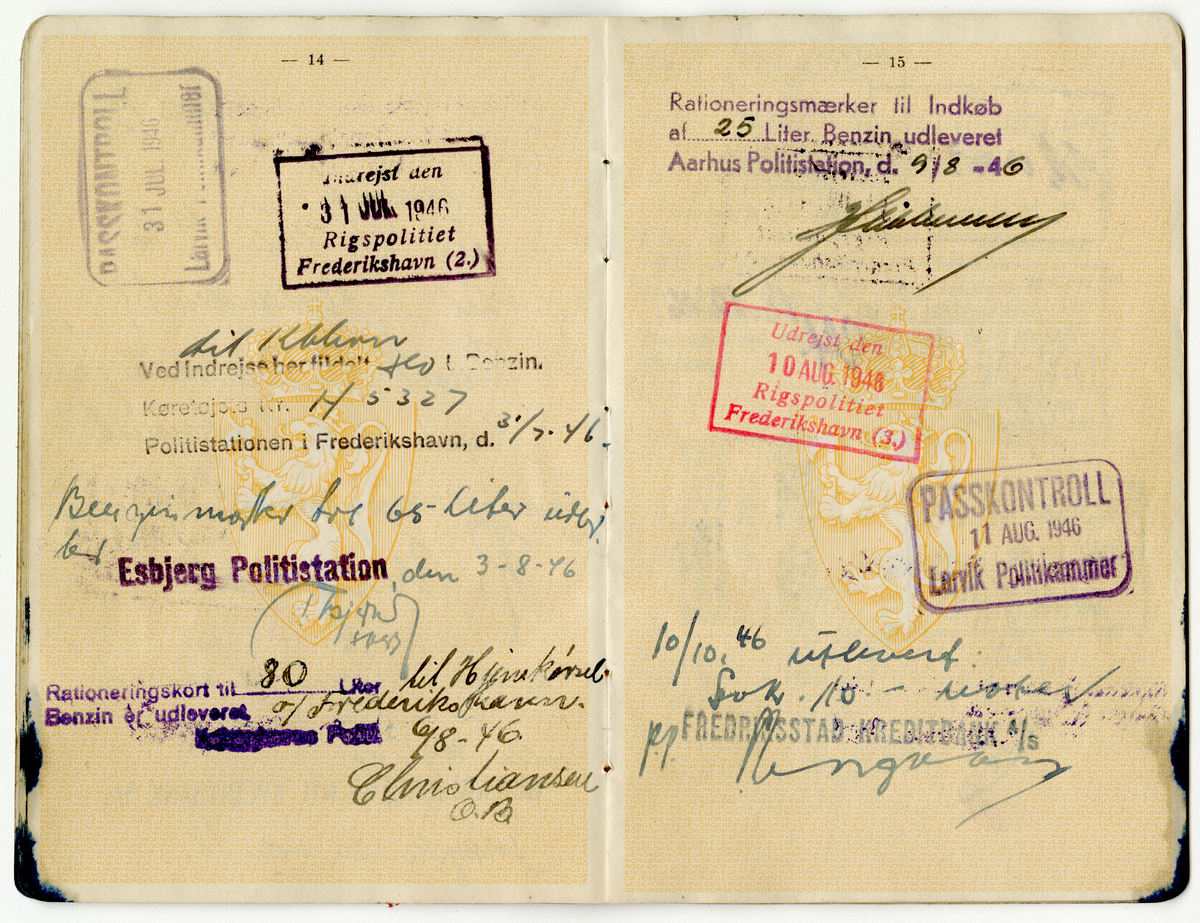 — 14 —
PASSKONTROLL
31 JUL 1946
Larvik Politikammer
Indrejst den
31 JUL. 1946
Rigspolitiet
Frederikshavn (2.)
til Kbhavn
Ved Indrejse her tildelt 40 L. Benzin.
Køretøjets Nr. H 5327
Politistationen i Frederikshavn, d. 31/7.46.
Benzinmærker for 65 Liter
Esbjerg Politistation, den 3-8-46
Rationeringskort til 80 Liter til Hjemkørsel
Benzin er udleveret o/ Frederikshavn.
6/8-46.
Christiansen
O.B.
— 15 —
Rationeringsmærker til Indkøb
af 25 Liter Benzin udleveret
Aarhus Politistation, d. 9/8-46
Udrejst den
10 AUG. 1946
Rigspolitiet
Frederikshavn (3.)
PASSKONTROLL
11 AUG. 1946
Larvik Politikammer
10/10.46 utlevert.
Sv.kr. 10.-
pp. FREDRIKSSTAD KREDITBANK A/S